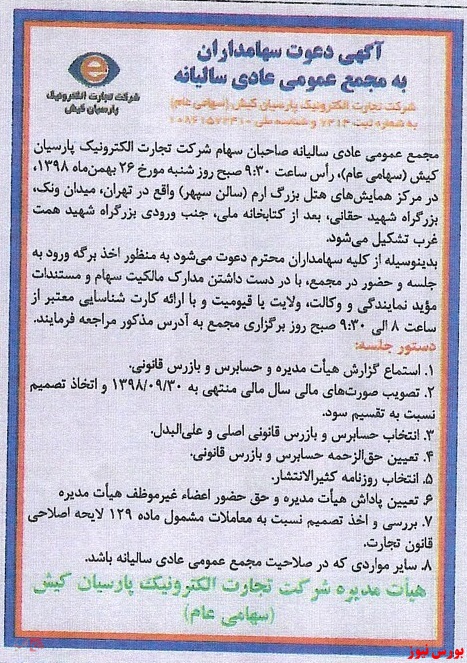 آگهی دعوت سهامداران
به مجمع عمومی عادی سالیانه
شرکت تجارت الکترونیک پارسیان کیش (سهامی عام)
به شماره ثبت ۷۴۱۳ و شناسه ملی ۱۰۸۶۱۵۷۲۴۱۰
شرکت تجارت الکترونیک
پارسیان کیش
مجمع عمومی عادی سالیانه صاحبان سهام شرکت تجارت الکترونیک پارسیان
کیش (سهامی عام)، رأس ساعت ۹:۳۰ صبح روز شنبه مورخ ۲۶ بهمن‌ماه ۱۳۹۸،
در مرکز همایش‌های هتل بزرگ ارم (سالن سپهر) واقع در تهران، میدان ونک،
بزرگراه شهید حقانی، بعد از کتابخانه ملی، جنب ورودی بزرگراه شهید همت
غرب تشکیل می‌شود.
بدینوسیله از کلیه سهامداران محترم دعوت می‌شود به منظور اخذ برگه ورود به
جلسه و حضور در مجمع، با در دست داشتن مدارک مالکیت سهام و مستندات
مؤید نمایندگی و وکالت، ولایت یا قیومیت و با ارائه کارت شناسایی معتبر از
ساعت ۸ الی ۹:۳۰ صبح روز برگزاری مجمع به آدرس مذکور مراجعه فرمایند.
دستور جلسه:
۱. استماع گزارش هیأت مدیره و حسابرس و بازرس قانونی.
۲. تصویب صورت‌های مالی سال مالی منتهی به ۱۳۹۸/۰۹/۳۰ و اتخاذ تصمیم
نسبت به تقسیم سود.
۳. انتخاب حسابرس و بازرس قانونی اصلی و علی‌البدل.
۴. تعیین حق‌الزحمه حسابرس و بازرس قانونی.
۵. انتخاب روزنامه کثیرالانتشار.
۶. تعیین پاداش هیأت مدیره و حق حضور اعضاء غیرموظف هیأت مدیره
۷. بررسی و اخذ تصمیم نسبت به معاملات مشمول ماده ۱۲۹ لایحه اصلاحی
قانون تجارت.
۸. سایر مواردی که در صلاحیت مجمع عمومی عادی سالیانه باشد.
هیأت مدیره شرکت تجارت الکترونیک پارسیان کیش
(سهامی عام)
بورس نیوز